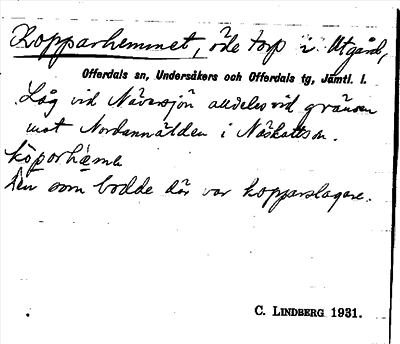 Kopparhemmet, öde torp i Utgård,
Offerdals sn, Undersåkers och Offerdals tg, Jämtl. l.
Låg vid Näversjön alldeles vid gränsen
mot Nordannälden i Näskottsn.
köporhæme
Den som bodde där var kopparslagare.
C. LINDBERG 1931.